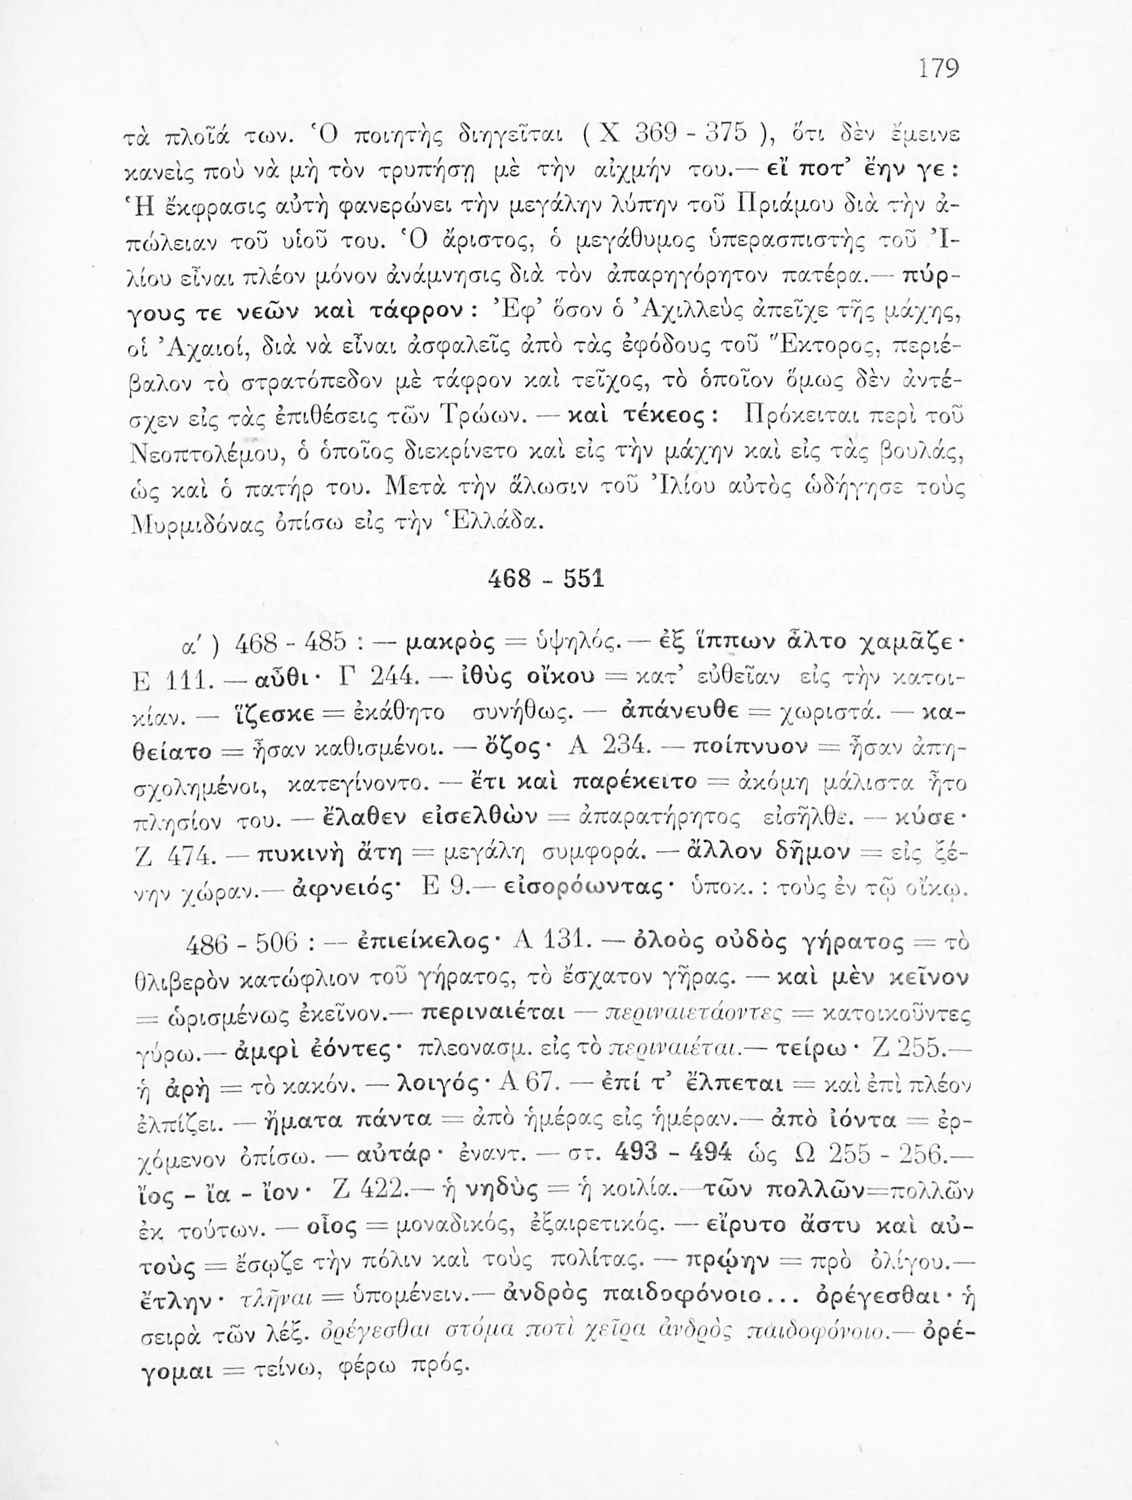 179
τὰ πλοῖά των. Ὁ ποιητὴς διηγεῖται ( Χ 369 - 375 ), ὅτι δὲν ἔμεινε
κανεὶς ποὺ νὰ μὴ τὸν τρυπήσῃ μὲ τὴν αἰχμήν του.— εἴ ποτ’ ἔην γε :
Ἡ ἔκφρασις αὐτὴ φανερώνει τὴν μεγάλην λύπην τοῦ Πριάμου διὰ τὴν ἀ-
πώλειαν τοῦ υἱοῦ του. Ὁ ἄριστος, ὁ μεγάθυμος ὑπερασπιστὴς τοῦ Ἰ-
λίου εἶναι πλέον μόνον ἀνάμνησις διὰ τὸν ἀπαρηγόρητον πατέρα.— πύρ-
γους τε νεῶν καὶ τάφρον : Ἐφ’ ὅσον ὁ Ἀχιλλεὺς ἀπεῖχε τῆς μάχης,
οἱ Ἀχαιοί, διὰ νὰ εἶναι ἀσφαλεῖς ἀπὸ τὰς ἐφόδους τοῦ Ἕκτορος, περιέ-
βαλον τὸ στρατόπεδον μὲ τάφρον καὶ τεῖχος, τὸ ὁποῖον ὅμως δὲν ἀντέ-
σχεν εἰς τὰς ἐπιθέσεις τῶν Τρώων. — καὶ τέκεος : Πρόκειται περὶ τοῦ
Νεοπτολέμου, ὁ ὁποῖος διεκρίνετο καὶ εἰς τὴν μάχην καὶ εἰς τὰς βουλάς,
ὡς καὶ ὁ πατήρ του. Μετὰ τὴν ἅλωσιν τοῦ Ἰλίου αὐτὸς ὡδήγησε τοὺς
Μυρμιδόνας ὀπίσω εἰς τὴν Ἑλλάδα.
468 - 551
α΄ ) 468 - 485 : — μακρὸς = ὑψηλός. — ἐξ ἵππων ἆλτο χαμᾶζε·
Ε 111. — αὖθι· Γ 244. — ἰθὺς οἴκου = κατ’ εὐθεῖαν εἰς τὴν κατοι-
κίαν. — ἵζεσκε = ἐκάθητο συνήθως. — ἀπάνευθε = χωριστά. — κα-
θείατο = ἦσαν καθισμένοι. — ὄζος· Α 234. — ποίπνυον = ἦσαν ἀπη-
σχολημένοι, κατεγίνοντο. — ἔτι καὶ παρέκειτο = ἀκόμη μάλιστα ἦτο
πλησίον του. — ἔλαθεν εἰσελθὼν = ἀπαρατήρητος εἰσῆλθε. — κύσε·
Ζ 474. — πυκινὴ ἄτη = μεγάλη συμφορά. — ἄλλον δῆμον = εἰς ξέ-
νην χώραν.— ἀφνειός· Ε 9.— εἰσορόωντας· ὑποκ. : τοὺς ἐν τῷ οἴκῳ.
486 - 506 : — ἐπιείκελος· Α 131. — ὀλοὸς οὐδὸς γήρατος = τὸ
θλιβερὸν κατώφλιον τοῦ γήρατος, τὸ ἔσχατον γῆρας. — καὶ μὲν κεῖνον
= ὡρισμένως ἐκεῖνον.— περιναιέται — περιναιετάοντες = κατοικοῦντες
γύρω.— ἀμφὶ ἐόντες· πλεονασμ. εἰς τὸ περιναιέται.— τείρω· Ζ 255.—
ἡ ἀρὴ = τὸ κακόν. — λοιγός· Α 67. — ἐπί τ’ ἔλπεται = καὶ ἐπὶ πλέον
ἐλπίζει. — ἤματα πάντα = ἀπὸ ἡμέρας εἰς ἡμέραν.— ἀπὸ ἰόντα = ἐρ-
χόμενον ὀπίσω. — αὐτάρ· ἐναντ. — στ. 493 - 494 ὡς Ω 255 - 256.—
ἴος - ἴα - ἴον· Ζ 422.— ἡ νηδὺς = ἡ κοιλία.— τῶν πολλῶν=πολλῶν
ἐκ τούτων. — οἶος = μοναδικός, ἐξαιρετικός. — εἴρυτο ἄστυ καὶ αὐ-
τοὺς = ἔσῳζε τὴν πόλιν καὶ τοὺς πολίτας. — πρῴην = πρὸ ὀλίγου.—
ἔτλην· τλῆναι = ὑπομένειν.— ἀνδρὸς παιδοφόνοιο... ὀρέγεσθαι· ἡ
σειρὰ τῶν λέξ. ὀρέγεσθαι στόμα ποτὶ χεῖρα ἀνδρὸς παιδοφόνοιο.— ὀρέ-
γομαι = τείνω, φέρω πρός.